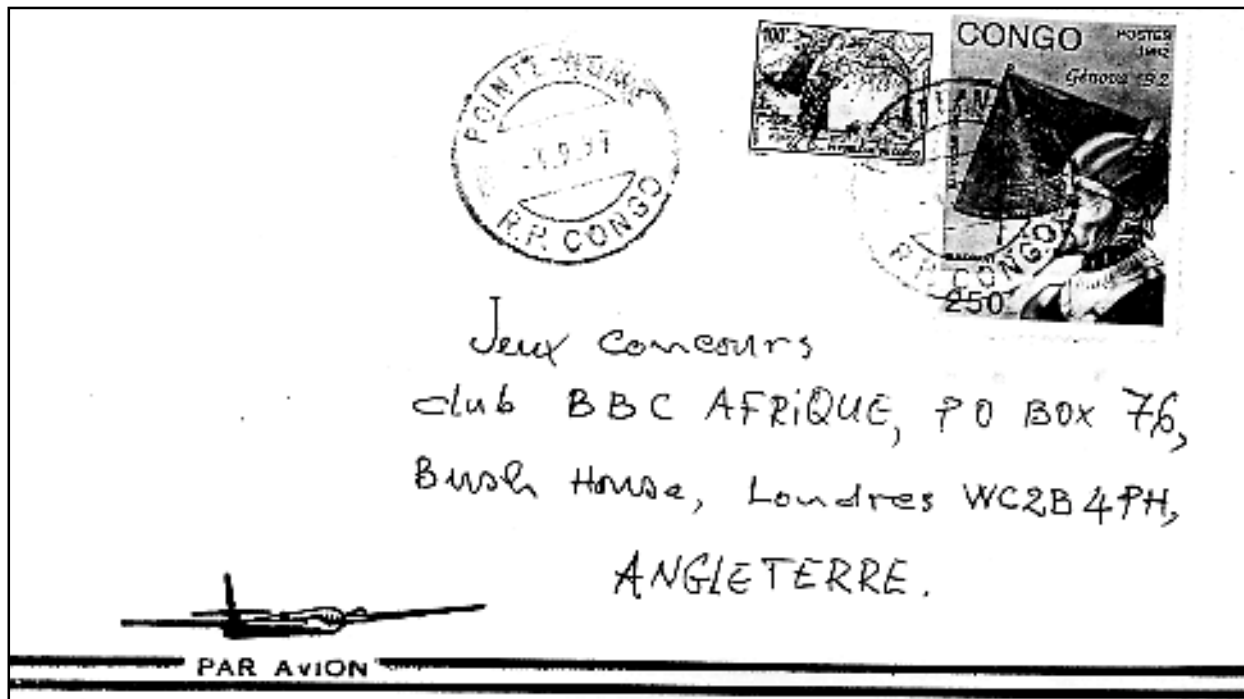 POINTE-NOIRE
R.P. CONGO
100F
CONGO
POSTES
1992
Génova
R.P. CONGO
250F
Jeux Concours
club BBC AFRiQUE, PO BOX 76,
Bush House, Londres WC2B 4PH,
ANGLETERRE.
PAR AVION